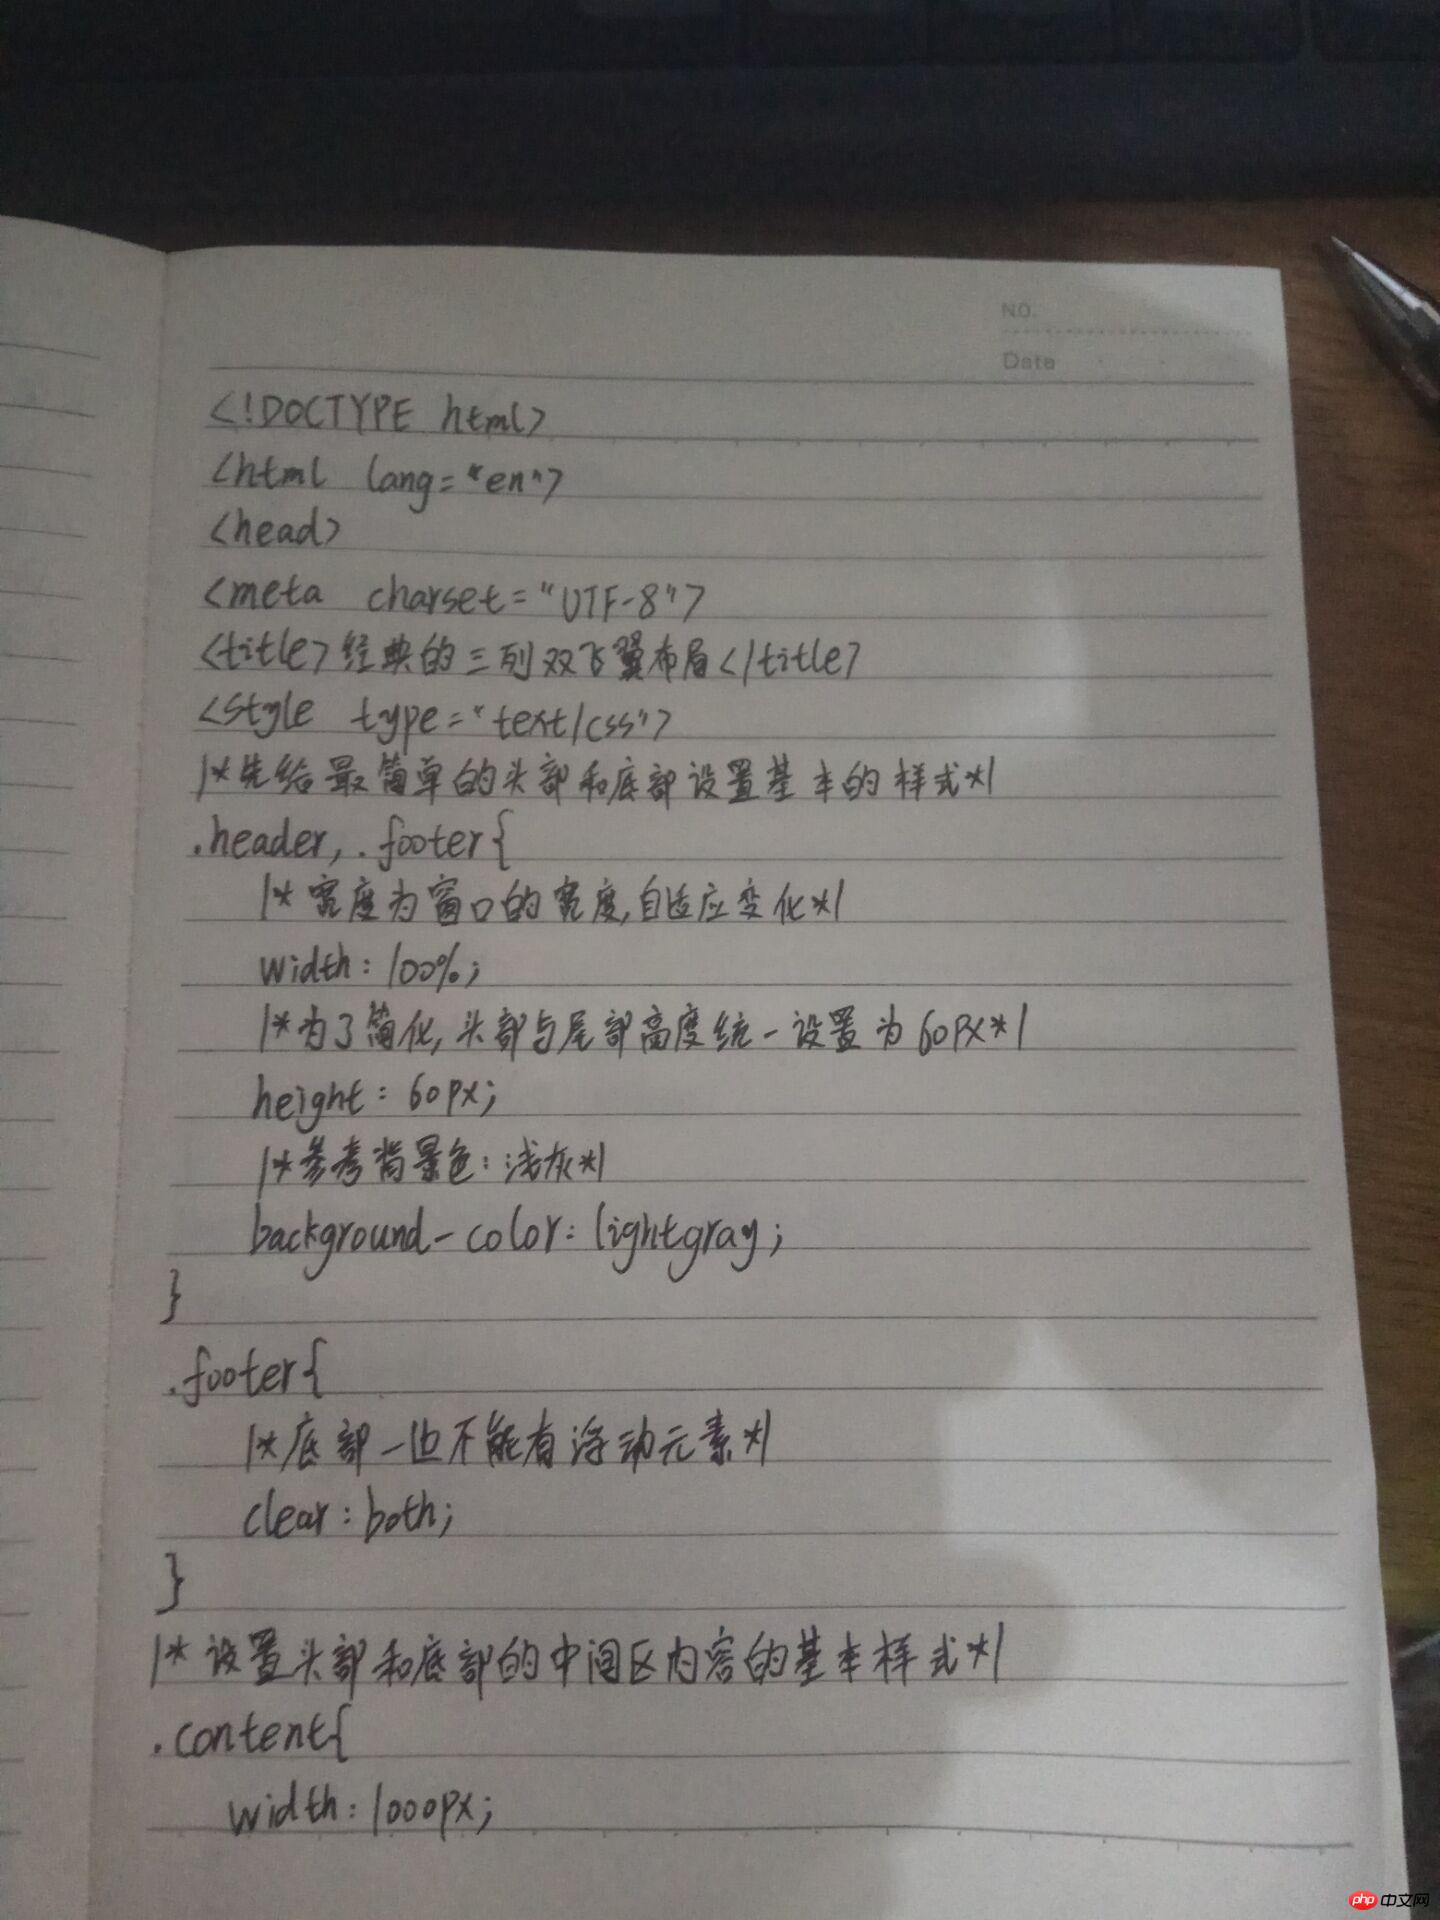 NO.
Data
<!DOCTYPE html>
<html lang="en">
<head>
<meta charset="UTF-8">
<title>经典的三列双飞翼布局</title>
<style type="text/css">
/*先给最简单的头部和底部设置基本的样式*/
.header, .footer{
/*宽度为窗口的宽度,自适应变化*/
width: 100%;
/*为了简化,头部与尾部高度统一设置为60px*/
height: 60px;
/*参考背景色:浅灰*/
background-color: lightgray;
}
.footer{
/*底部一边不能有浮动元素*/
clear: both;
}
/*设置头部和底部的中间区内容的基本样式*/
.content{
width: 1000px;
php中文网